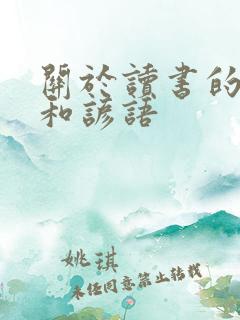 關於讀書的
和諺語
姚琪
未任同意禁止轉載